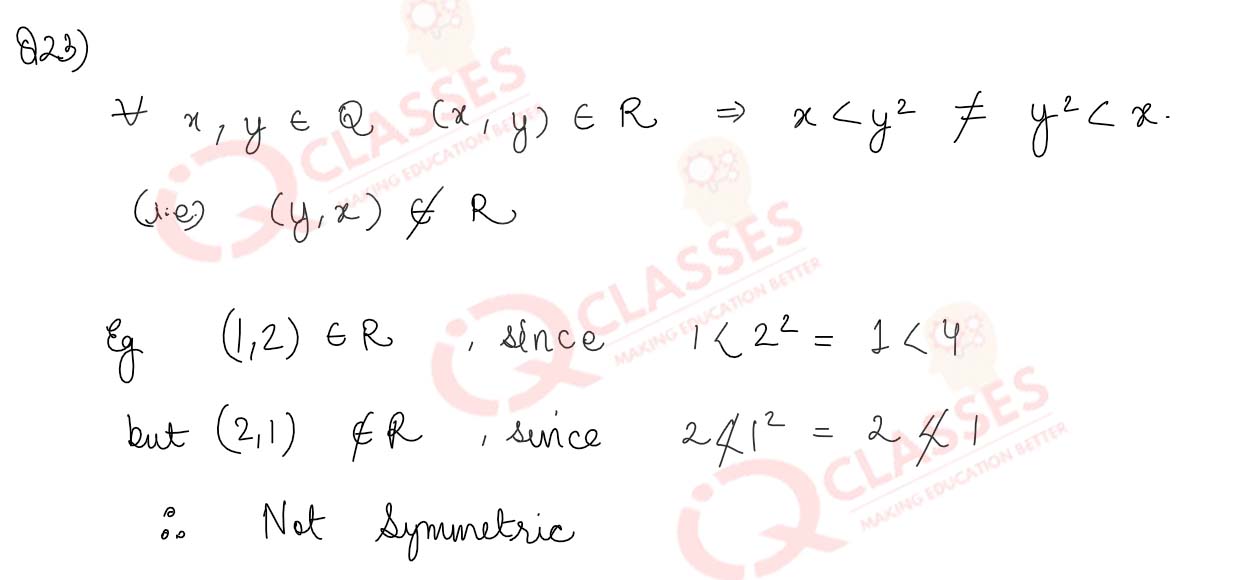 Q23)
∀ x, y ∈ Q (x, y) ∈ R ⇒ x < y² ≠ y² < x.
(i.e) (y, x) ∉ R
Eg (1,2) ∈ R , since 1 < 2² = 1 < 4
but (2,1) ∉ R , since 2 ≮ 1² = 2 ≮ 1
∴ Not Symmetric
IQ CLASSES
MAKING EDUCATION BETTER
IQ CLASSES
MAKING EDUCATION BETTER
IQ CLASSES
MAKING EDUCATION BETTER